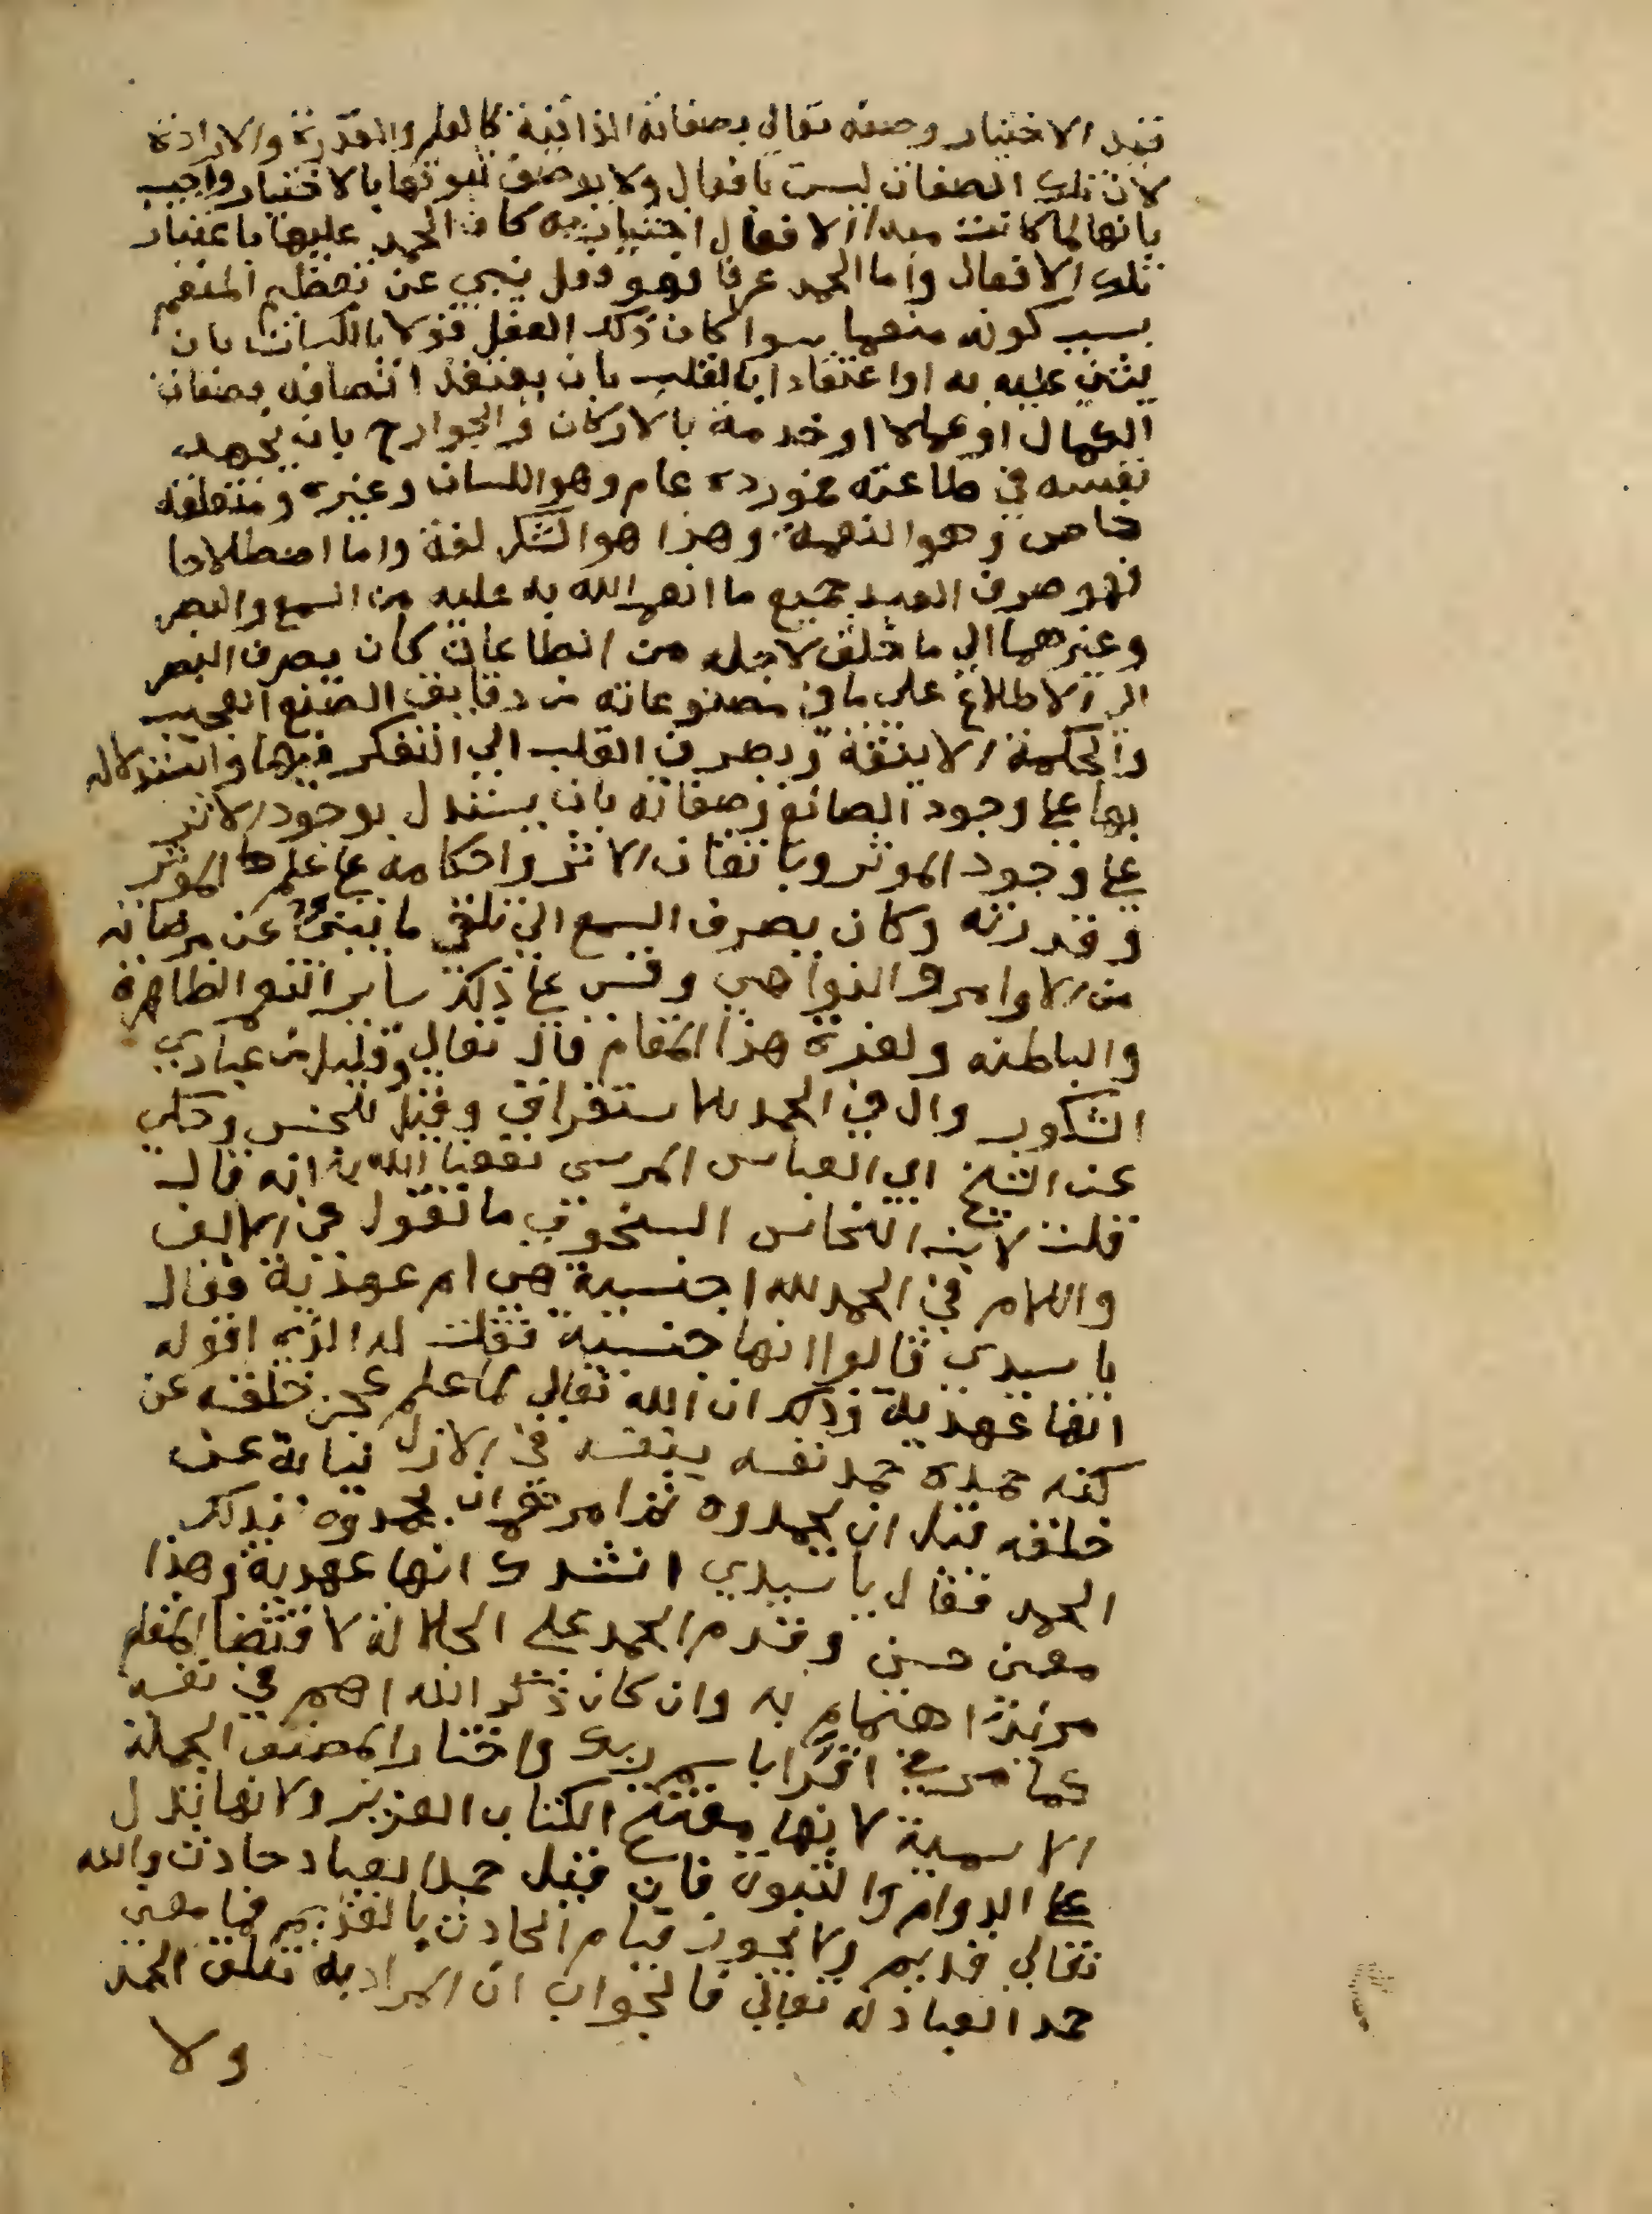 قيد الاختيار وصفه تعالى بصفاته الذاتية كالعلم والقدرة والارادة
لان تلك الصفات ليست بافعال ولا يوصف ثبوتها بالاختيار واجيب
بانها لما كانت مبدا الافعال اختيارية كان الحمد عليها باعتبار
تلك الافعال واما الحمد عرفا فهو فعل ينبي عن تعظيم المنعم
بسبب كونه منعما سوا كان ذلك الفعل قولا باللسان بان
يثني عليه به او اعتقادا بالقلب بان يعتقد اتصافه بصفات
الكمال او عملا او خدمة بالاركان والجوارح بان يجهد
نفسه في طاعته فمورده عام وهو اللسان وغيره ومتعلقه
خاص وهو النعمة وهذا هو الشكر لغة واما اصطلاحا
فهو صرف العبد جميع ما انعم الله به عليه من السمع والبصر
وغيرهما الي ما خلق لاجله من الطاعات كان يصرف البصر
الى الاطلاع على ما في مصنوعاته من دقايق الصنع العجيب
والحكمة الانيقة ويصرف القلب الي التفكر فيها والاستدلال
بها على وجود الصانع وصفاته بان يستدل بوجود الاثر
على وجود الموثر وباتقان الاثر واحكامه على علم الموثر
وقدرته وكان يصرف السمع الي تلقي ما ينبئ عن مرضاته
من الاوامر والنواهي وقس على ذلك ساير النعم الظاهرة
والباطنه ولعزة هذا المقام قال تعالى وقليل من عبادي
الشكور وال في الحمد للاستغراق وقيل للجنس وحكي
عن الشيخ ابي العباس المرسي نفعنا الله به انه قال
قلت لابن النحاس النحوي ما تقول في الالف
واللام في الحمد لله اجنسية هي ام عهدية فقال
يا سيدي قالوا انها جنسية فقلت له الذي اقوله
انها عهدية وذلك ان الله تعالى لما علم عجز خلقه عن
كنه حمده حمد نفسه بنفسه في الازل نيابة عن
خلقه قبل ان يحمدوه ثم امرهم ان يحمدوه بذلك
الحمد فقال يا سيدي اشهدك انها عهدية وهذا
معنى حسن وقدم الحمد على الجلالة لاقتضا المقام
مزيد اهتمام به وان كان ذكر الله اهم في نفسه
كما مر في اقرا باسم ربك واختار المصنف الجملة
الاسمية لانها مفتتح الكتاب العزيز ولانها تدل
على الدوام والثبوت فان قيل حمد العباد حادث والله
تعالى قديم ولا يجوز قيام الحادث بالقديم فما معنى
حمد العباد له تعالى فالجواب ان المراد به تعلق الحمد
ولا